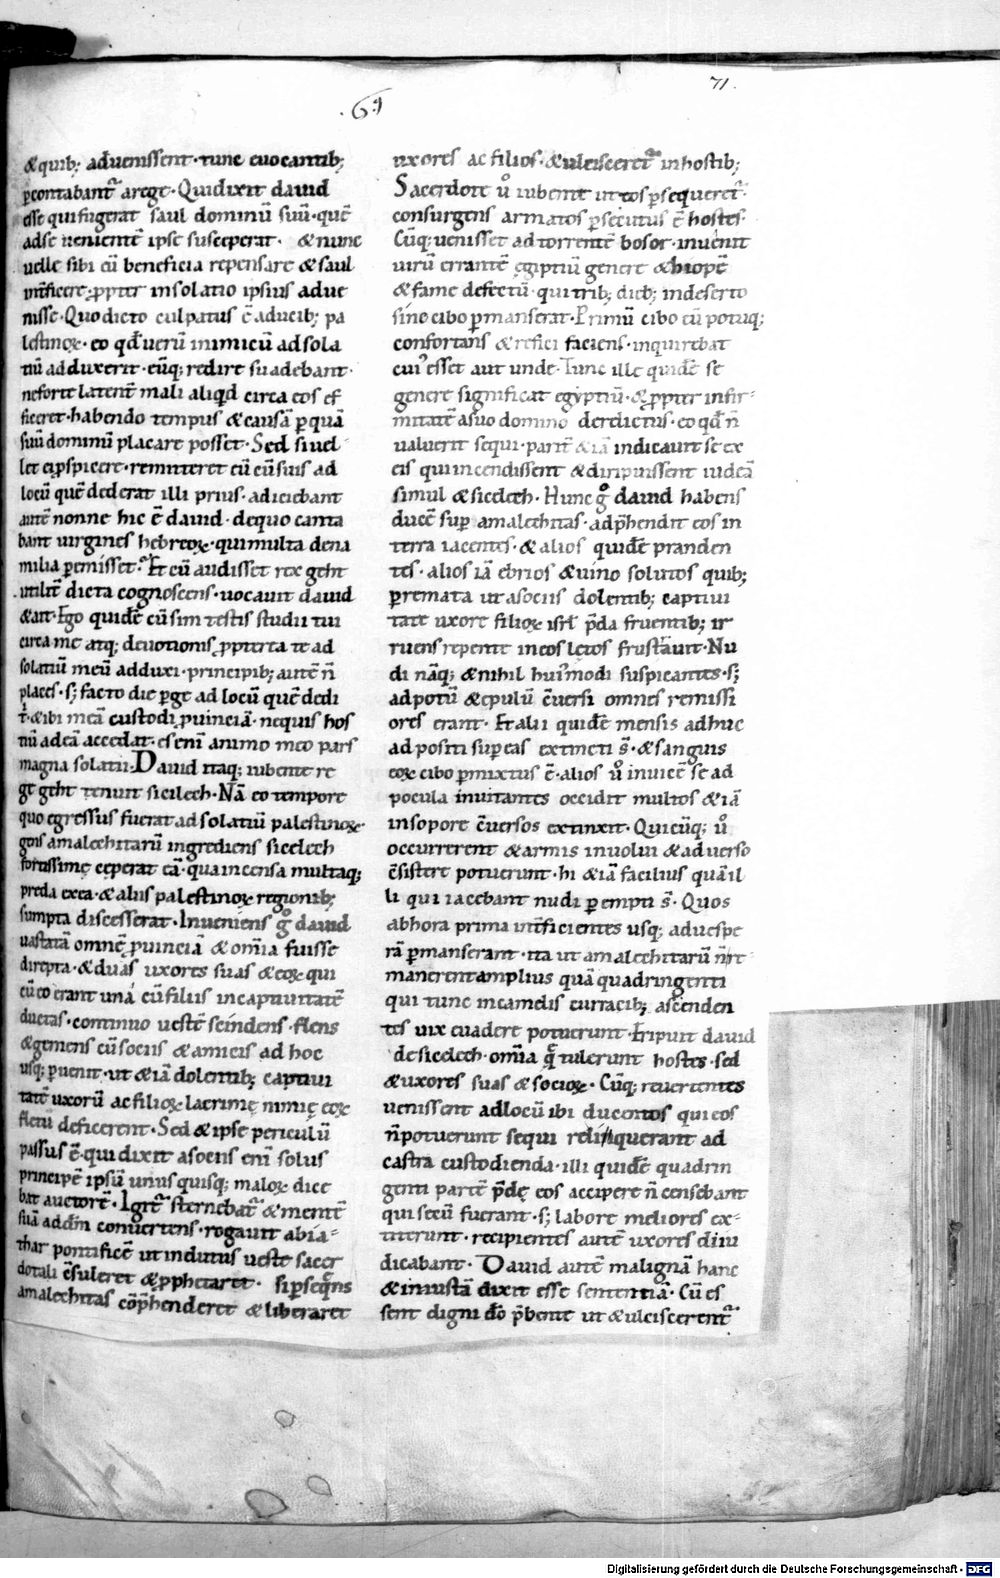 71.
69
&quib; aduenissent · tunc euocantib;
ꝑcontabant᷑ a rege · Qui dixit dauid
esse qui fugerat saul dominũ suũ · quẽ
ad se uenientẽ ipse susceperat · & nunc
uelle sibi cũ beneficia repensare & saul
int̃ficere ꝓpter in solatio ipsius adue
nisse · Quo dicto culpatus ẽ a ducib; pa
lestinoꝝ · eo qđ uerũ inimicũ ad sola
tiũ adduxerit · eũq; redire suadebant ·
ne forte latent̃ mali aliqđ circa eos ef
ficeret · habendo tempus & causã ꝑ quã
suũ dominũ placare posset · Sed si uel
let ei ꝓspicere · remitteret eũ cũ suis ad
locũ quẽ dederat illi prius · adiciebant
autẽ nonne hic ẽ dauid · de quo canta
bant uirgines hebreoꝝ · qui multa dena
milia ꝑemisset · Et cũ audisset rex geht
utilit̃ dicta cognoscens · uocauit dauid
& ait · Ego quidẽ cũ sim testis studii tui
circa me atq; deuotionis ꝓpterea te ad
solatiũ meũ adduxi · principib; autẽ ñ
places · s; facto die ꝑge ad locũ quẽ dedi
t̃ · & ibi meã custodi ꝓuinciã · nequis hos
tiũ ad eã accedat · es enĩ animo meo pars
magna solatii · Dauid itaq; iubente re
ge geht tenuit sicilech · Nã eo tempore
quo egressus fuerat ad solatiũ palestinoꝝ ·
gens amalechitarũ ingrediens sicelech
fortissimę ceperat eã · qua incensa multaq;
preda exea · & aliis palestinoꝝ regionib;
sumpta discesserat · Inueniens g̊ dauid
uastatã omnẽ ꝓuinciã & om̃ia fuisse
direpta · & duas uxores suas & eoꝝ qui
cũ eo erant unà cũ filiis in captiuitatẽ
ductas · continuo uestẽ scindens · flens
& gemens cũ sociis & amicis ad hoc
usq; ꝑuenit · ut & iã dolentib; captiui
tatẽ uxorũ ac filioꝝ lacrimę nimię eoꝝ
fletũ deficerent · Sed & ipse periculũ
passus ẽ · qui dixit a sociis enĩ solus
principẽ ipsũ unus quisq; maloꝝ dice
bat auctorẽ · Igit᷑ sternebat᷑ & mentẽ
suã ad dm̃ conuertens · rogauit abia
thar pontificẽ ut indutus ueste sacer
dotali c̃suleret & ꝓphetaret · si ꝑseq̃ns
amalechitas cõp̃henderet & liberaret
uxores ac filios · & ulcisceret᷑ in hostib;
Sacerdote ů iubente ut eos ꝑsequeret᷑
consurgens armatos ꝑsecutus ẽ hostes ·
Cũq; uenisset ad torrentẽ bosor · inuenit
uirũ errantẽ egiptiũ genere & hiopẽ
& fame defectũ · qui trib; dieb; in deserto
sine cibo ꝑmanserat · Primũ cibo eũ potuq;
confortans & refici faciens · inquirebat
cui᷒ esset aut unde · Tunc ille quidẽ se
genere significat egyptiũ · & ꝓpter infir
mitatẽ a suo domino derelictus · eo qđ ñ
ualuerit sequi · parit̃ & iã indicauit se ex
eis qui incendissent & diripuissent iudeã
simul & sicelech · Hunc g̊ dauid habens
ducẽ suꝑ amalechitas · adp̃hendit eos in
terra iacentes · & alios quidẽ pranden
tes · alios iã ebrios & uino solutos quib;
ꝑ remata ut a sociis dolentib; captiui
tate uxore filioꝝ isrł p̃da fruentib; ir
ruens repente in eos lętos frustauit · Nu
di nãq; & nihil hui᷒modi suspicantes · s;
ad potũ & epulũ c̃uersi omnes remissi
ores erant · Et alii quidẽ mensis adhuc
ad positi suꝑ eas extincti s̃ · & sanguis
eoꝝ cibo ꝑmixtus ẽ · alios ů inuicẽ se ad
pocula inuitantes occidit multos & iã
in sopore c̃uersos extinxit · Quicũq; ů
occurrerent & armis inuolui & aduerso
c̃sistere potuerunt · hi & iã facilius quã il
li qui iacebant nudi ꝑempti s̃ · Quos
abhora prima int̃ficientes usq; ad uespe
rã ꝑmanserant · ita ut amalechitarũ ñ re
manerent amplius quã quadringenti
qui tunc in camelis curracib; ascenden
tes uix euadere potuerunt · Eripuit dauid
de sicelech · om̃ia q̃ tulerunt hostes · sed
& uxores suas & socioꝝ · Cũq; reuertentes
uenissent ad locũ ibi ducentos qui eos
ñ potuerunt sequi reliquerant ad
castra custodienda · illi quidẽ quadrin
genti partẽ p̃dę eos accipere ñ censebant
qui secũ fuerant · s; labore meliores ex
titerunt · recipientes autẽ uxores diiu
dicabant · Dauid autẽ malignã hanc
& iniustã dixit esse sententiã · Cũ es
sent digni dõ p̃bente ut & ulciscerent᷑
Digitalisierung gefördert durch die Deutsche Forschungsgemeinschaft · DFG